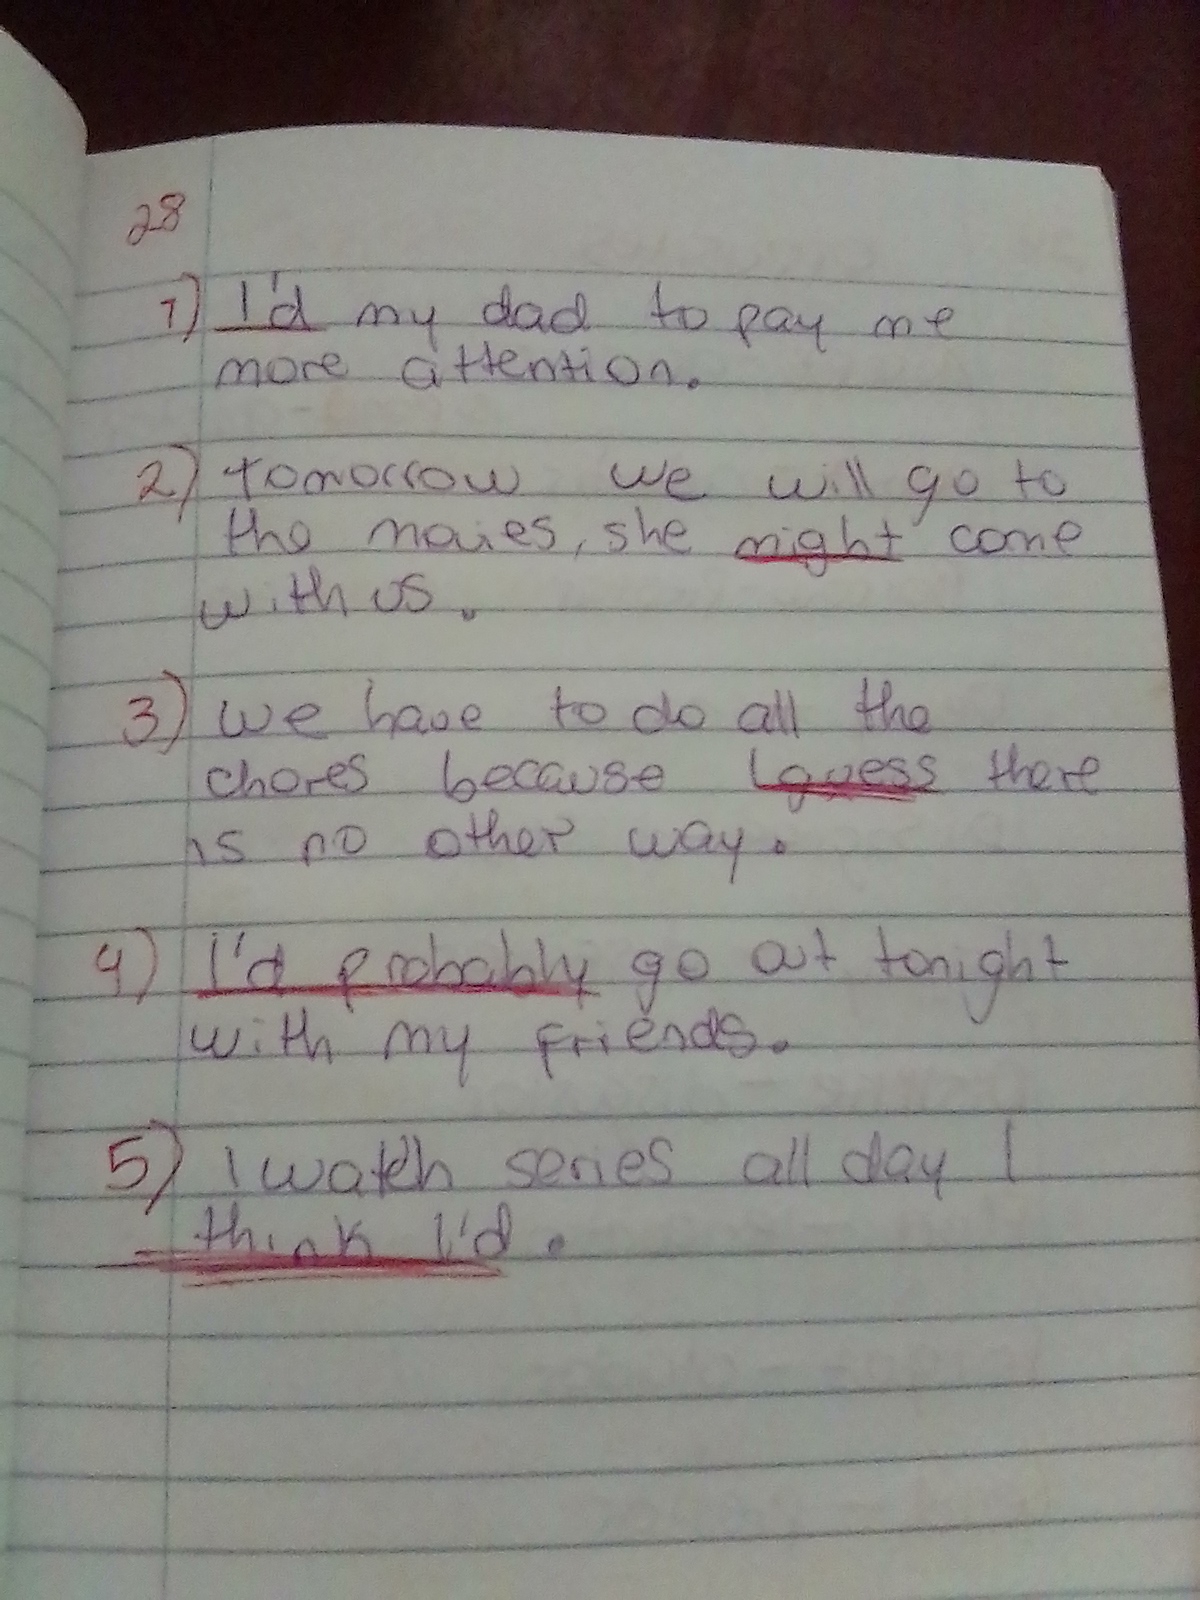 28
1) I'd my dad to pay me
more attention.
2) tomorrow we will go to
the movies, she might come
with us.
3) we have to do all the
chores because I guess there
is no other way.
4) I'd probably go out tonight
with my friends.
5) I watch series all day I
think I'd.